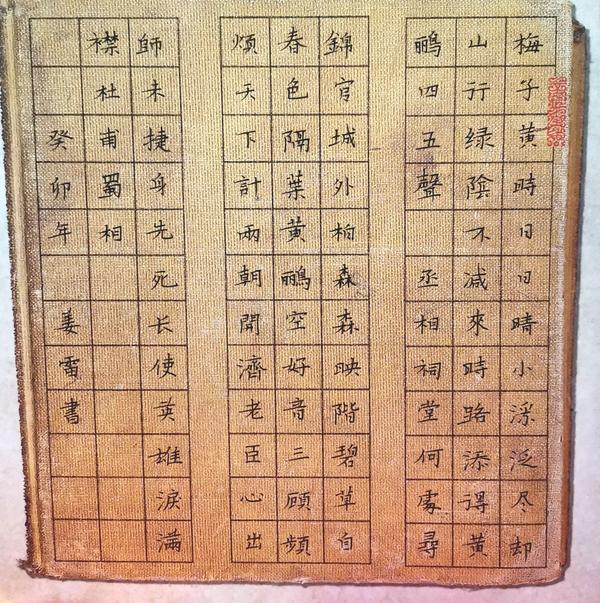 梅子黄時日日晴小溪泛尽却
山行绿陰不減來時路添得黄
鹂四五聲 丞相祠堂何處尋
錦官城外柏森森映階碧草自
春色隔葉黄鹂空好音三顧頻
煩天下計兩朝開濟老臣心出
師未捷身先死长使英雄淚满
襟杜甫蜀相
癸卯年 姜雷書